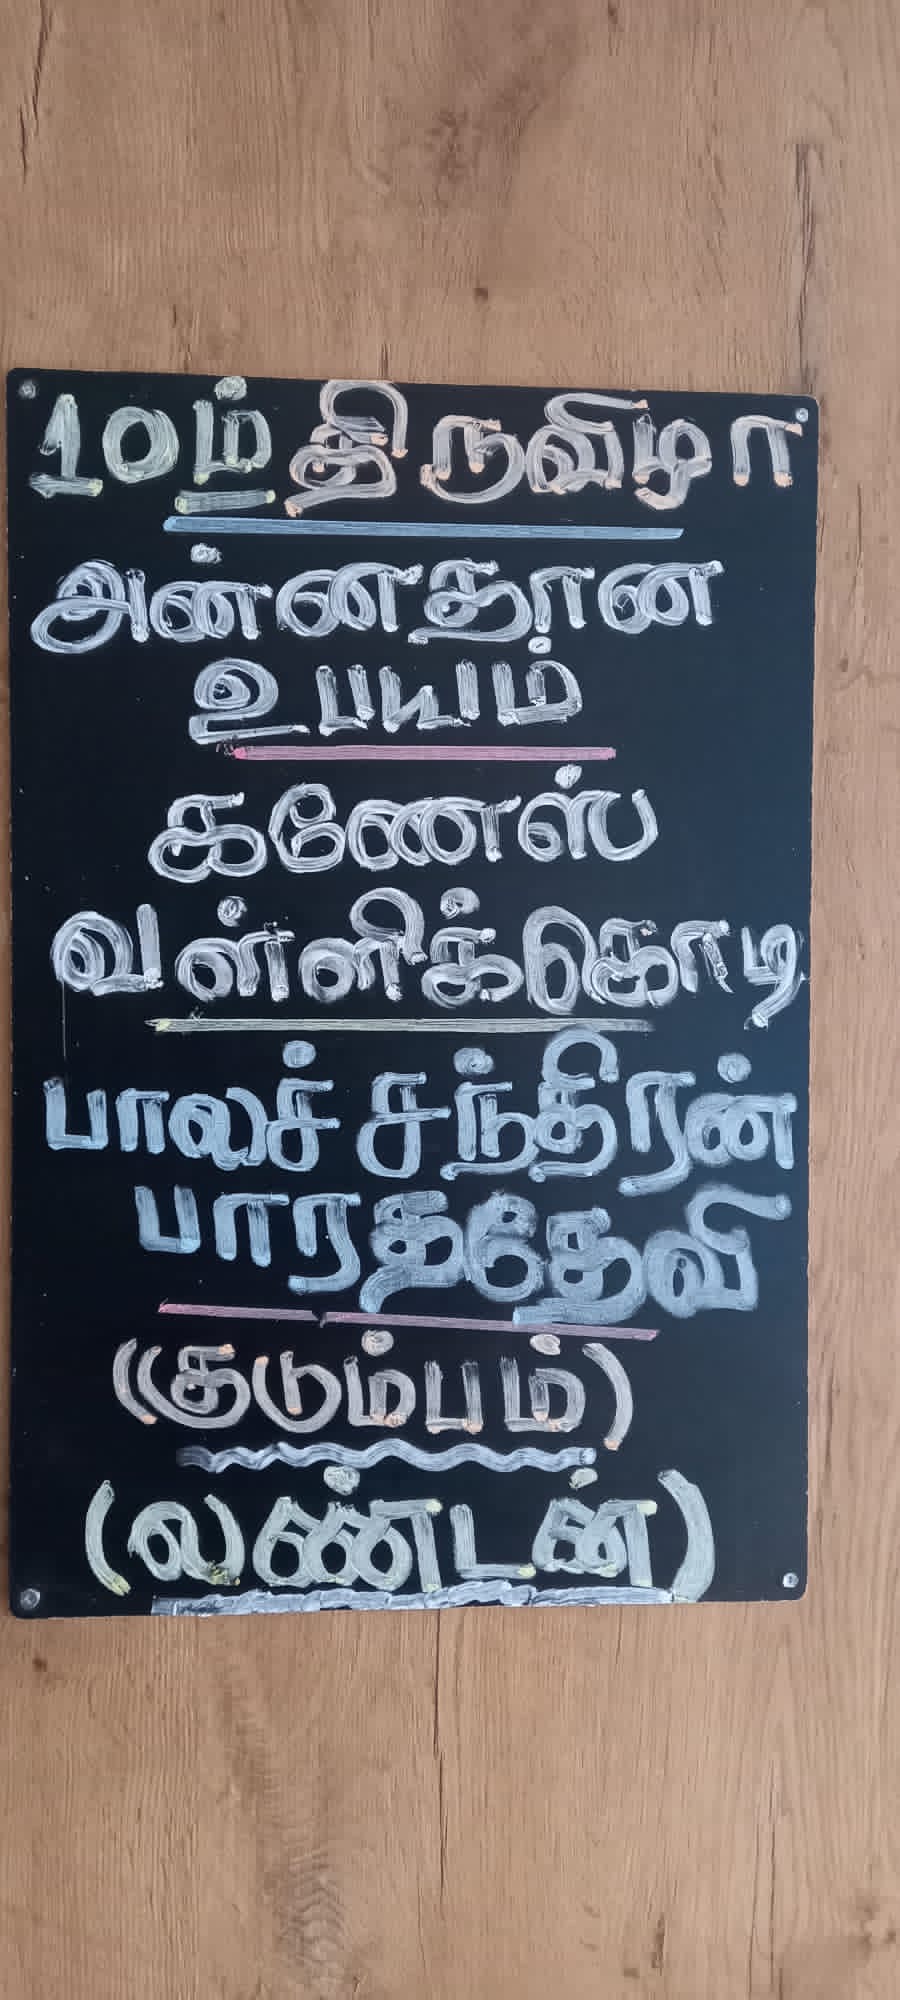 10ம் திருவிழா
அன்னதான
உபயம்
கணேஸ்
வள்ளிக்கொடி
பாலச் சந்திரன்
பாரததேவி
(குடும்பம்)
(லண்டன்)